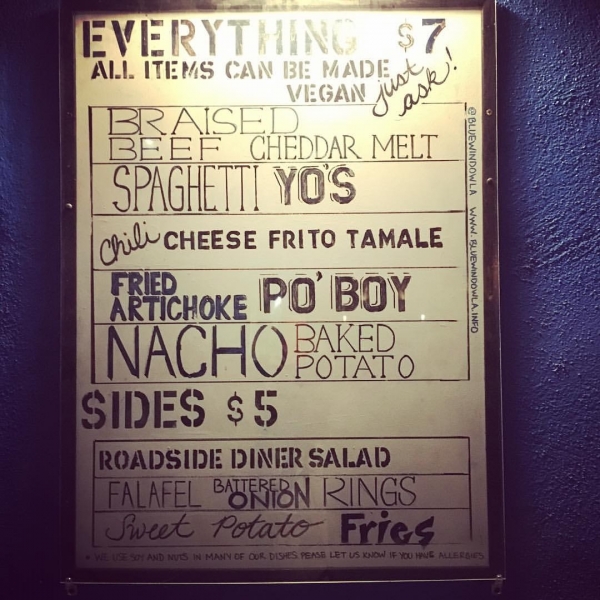 EVERYTHING $7
ALL ITEMS CAN BE MADE
VEGAN just
ask!
BRAISED
BEEF CHEDDAR MELT
SPAGHETTI YO'S
Chili CHEESE FRITO TAMALE
FRIED
ARTICHOKE PO' BOY
NACHO BAKED
POTATO
SIDES $5
ROADSIDE DINER SALAD
FALAFEL BATTERED
ONION RINGS
Sweet Potato Fries
* WE USE SOY AND NUTS IN MANY OF OUR DISHES. PEASE LET US KNOW IF YOU HAVE ALLERGIES
@BLUEWINDOWLA WWW.BLUEWINDOWLA.INFO